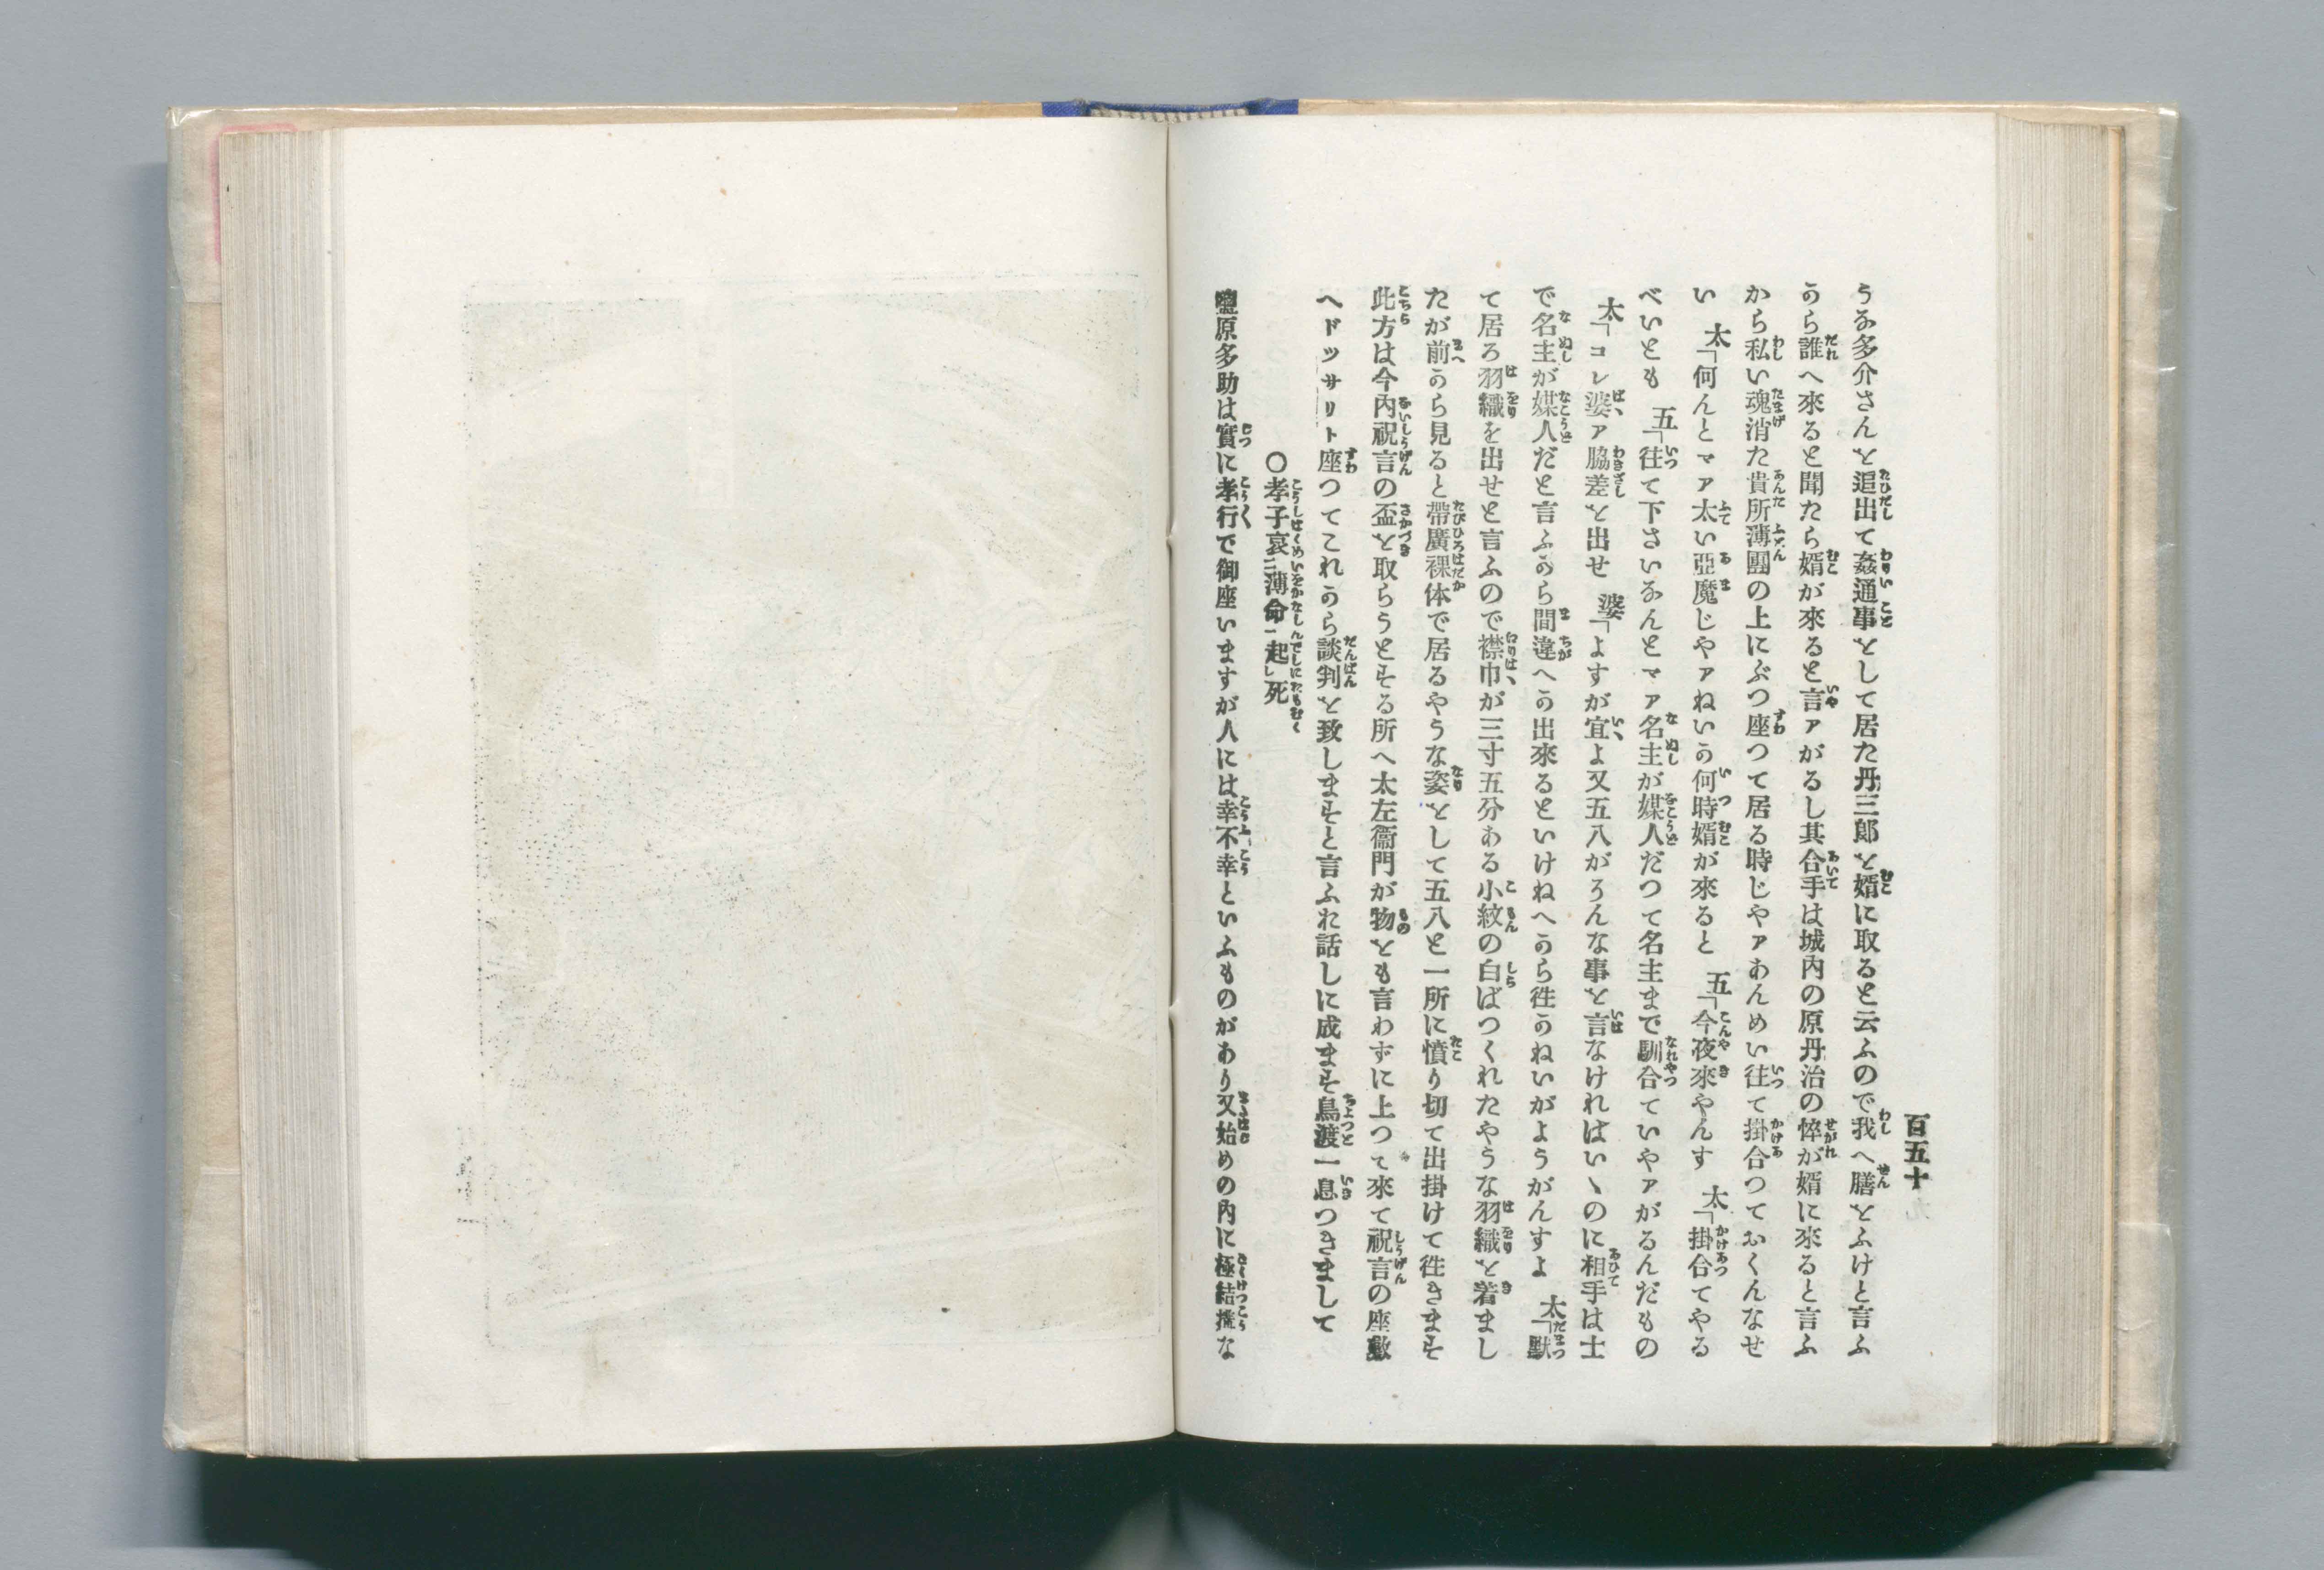 百五十
うな多介さんを追出て姦通事をして居た丹三郎を婿に取ると云ふので我へ膳をふけと言ふ
から誰へ來ると聞たら婿が來ると言アがるし其合手は城内の原丹治の悴が婿に來ると言ふ
から私い魂消た貴所薄團の上にぶつ座つて居る時じやアあんめい徃て掛合つておくんなせ
い　太「何んとマア太い亞魔じやアねいか何時婿が來ると　五「今夜來やんす　太「掛合てやる
べいとも　五「徃て下さいなんとマア名主が媒人だつて名主まで馴合ていやアがるんだもの
太「コレ婆アア脇差を出せ　婆「よすが宜よ又五八がろんな事を言なければいゝのに相手は士
で名主が媒人だと言ふから間違へか出來るといけねへから徃かねいがようがんすよ　太「默
て居ろ羽織を出せと言ふので襟巾が三寸五分ある小紋の白ばつくれたやうな羽織を着まし
たが前から見ると帶廣裸体で居るやうな姿をして五八と一所に憤り切て出掛けて徃きます
此方は今内祝言の盃を取らうとする所へ太左衞門が物をも言わずに上つて來て祝言の座敷
へドッサリト座つてこれから談判を致しますと言ふお話しに成ます鳥渡一息つきまして
〇孝子哀二薄命一起レ死
鹽原多助は實に孝行で御座いますが人には幸不幸といふものがあり又始めの内に極結搆な